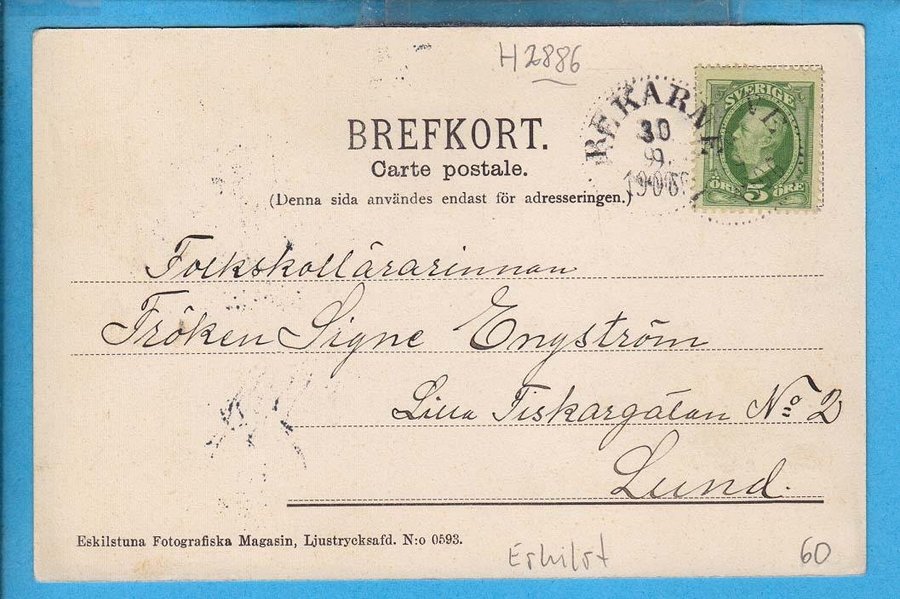 H2886
BREFKORT.
Carte postale.
(Denna sida användes endast för adresseringen.)
REKARNE
30
9.
SVERIGE
ÖRE 5 ÖRE
Folkskollärarinnan
Fröken Signe Engström
Lilla Fiskargatan No 2
Lund.
Eskilstuna Fotografiska Magasin, Ljustrycksafd. N:o 0593.
Eskilst
60